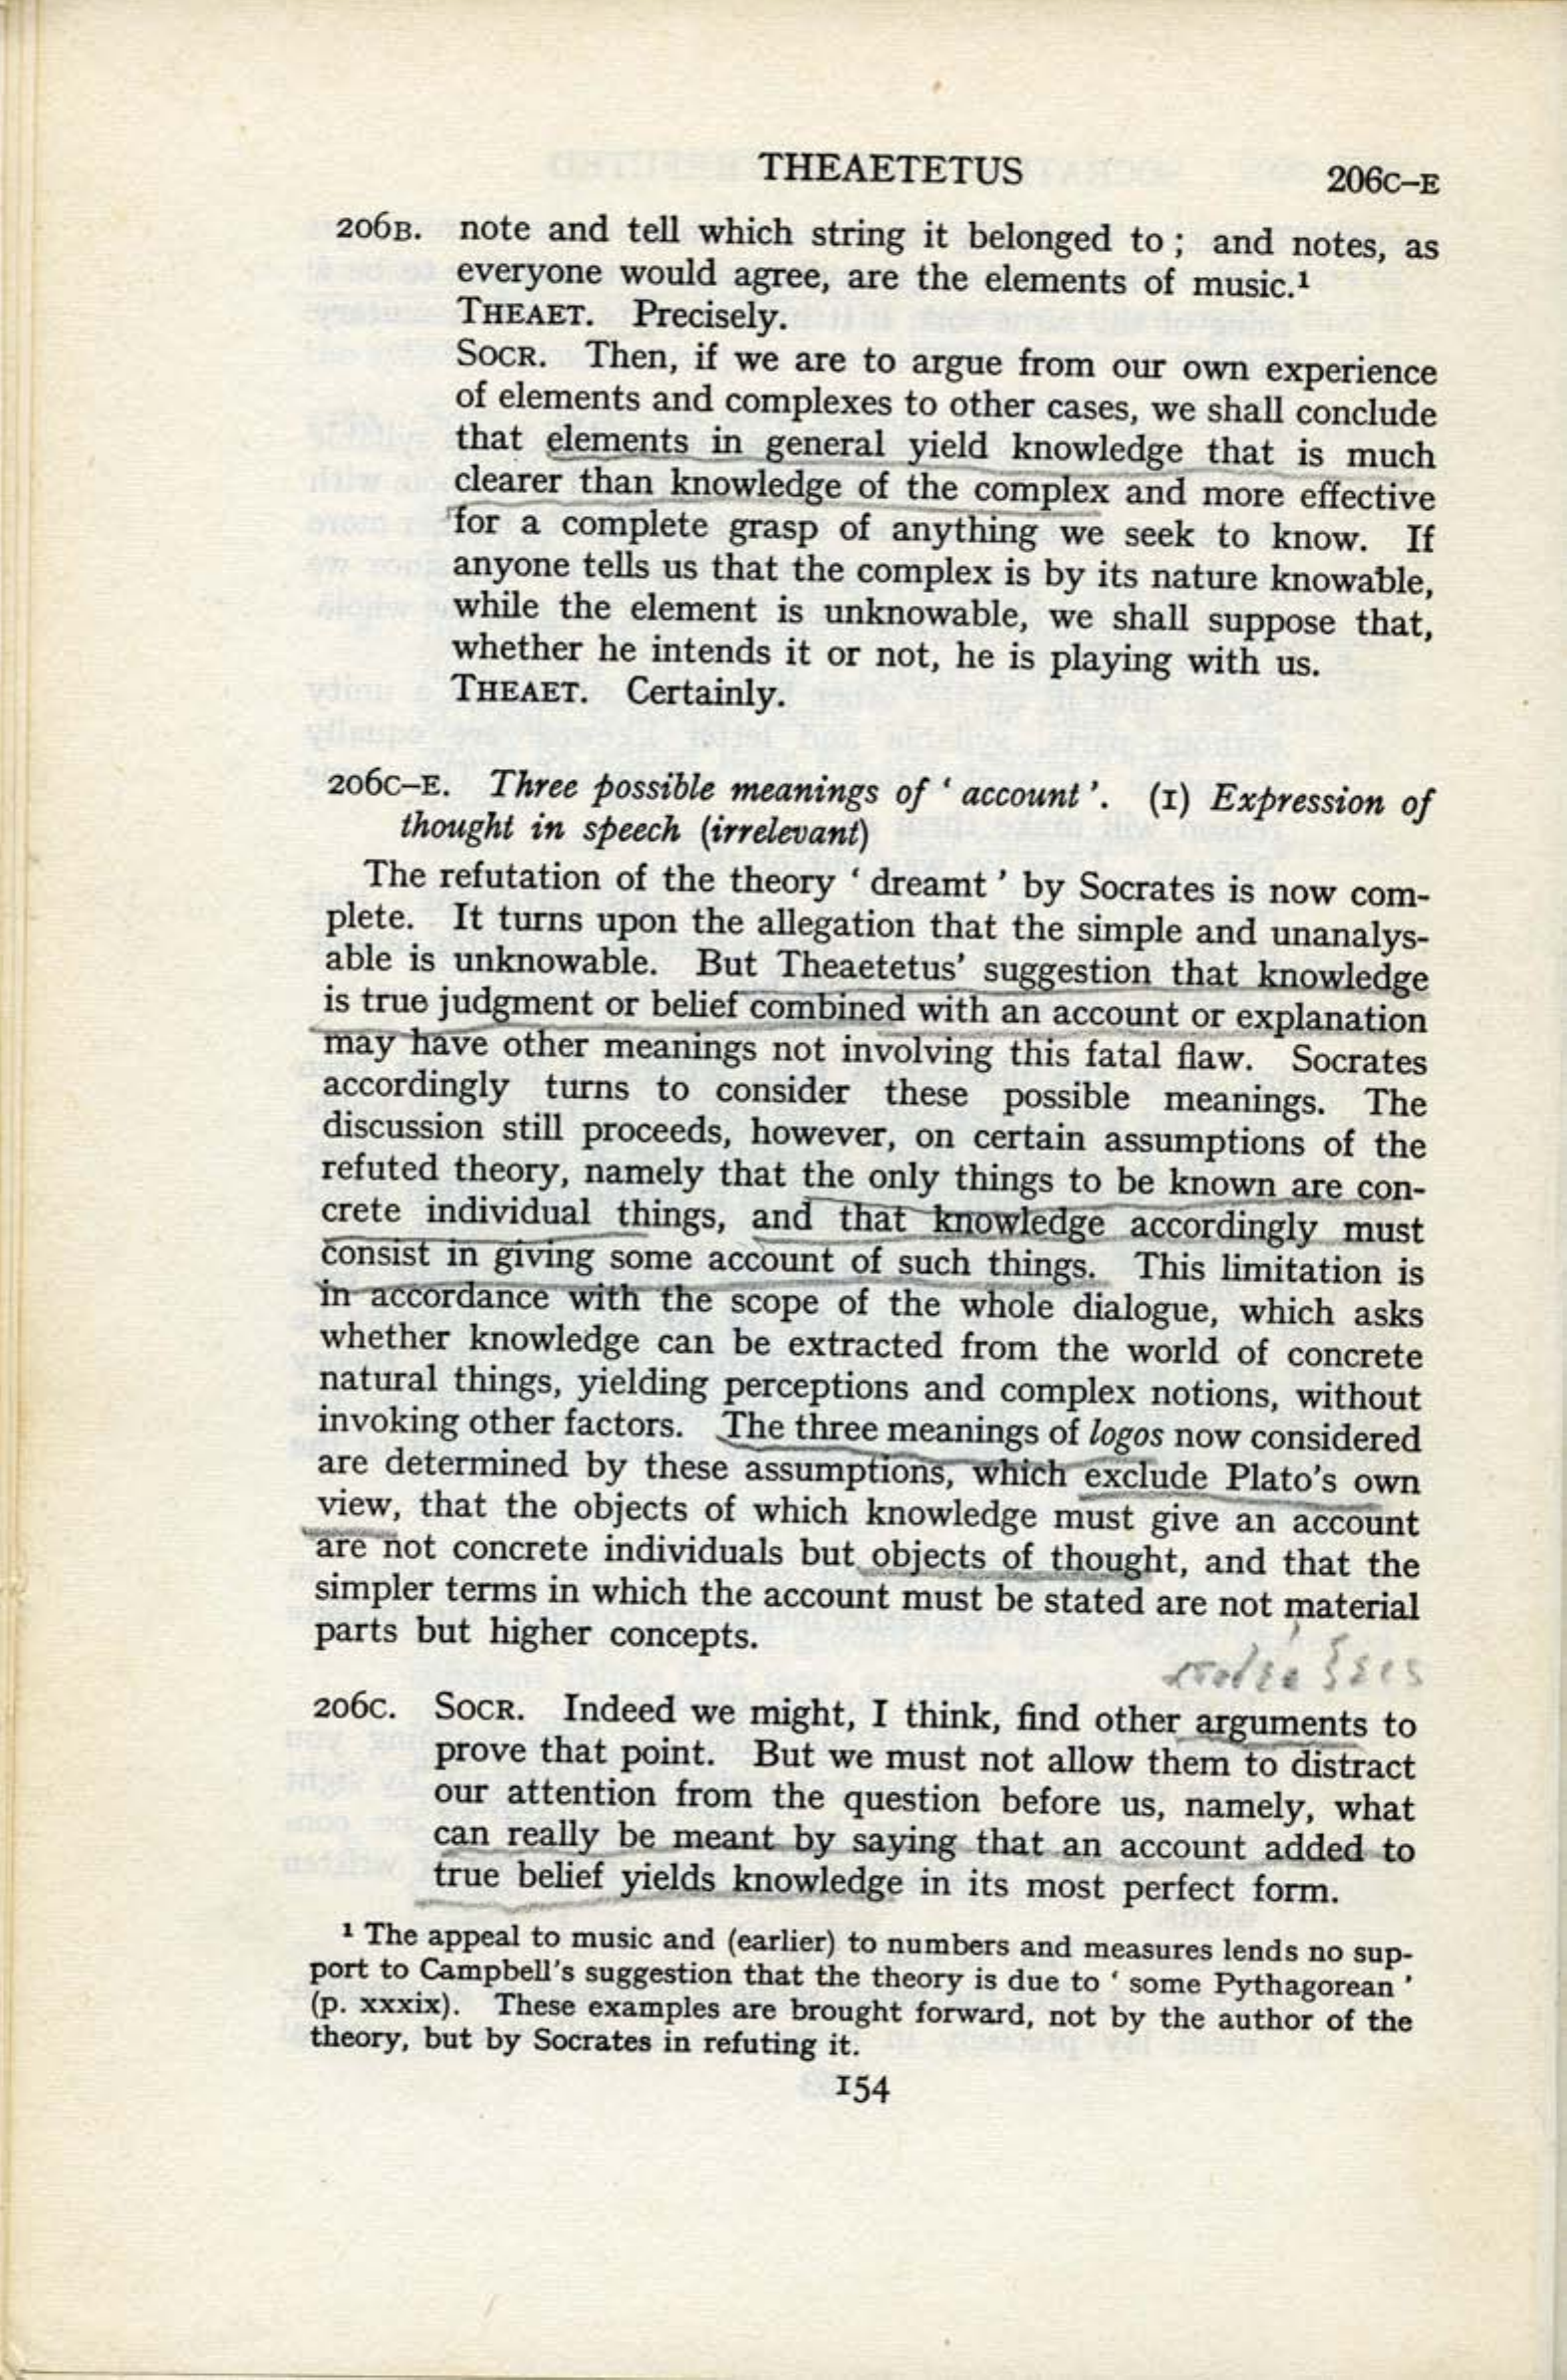 THEAETETUS 206C–E
206B. note and tell which string it belonged to ; and notes, as
everyone would agree, are the elements of music.¹
THEAET. Precisely.
SOCR. Then, if we are to argue from our own experience
of elements and complexes to other cases, we shall conclude
that elements in general yield knowledge that is much
clearer than knowledge of the complex and more effective
for a complete grasp of anything we seek to know. If
anyone tells us that the complex is by its nature knowable,
while the element is unknowable, we shall suppose that,
whether he intends it or not, he is playing with us.
THEAET. Certainly.
206C–E. Three possible meanings of ‘ account ’. (1) Expression of
thought in speech (irrelevant)
The refutation of the theory ‘ dreamt ’ by Socrates is now com-
plete. It turns upon the allegation that the simple and unanalys-
able is unknowable. But Theaetetus’ suggestion that knowledge
is true judgment or belief combined with an account or explanation
may have other meanings not involving this fatal flaw. Socrates
accordingly turns to consider these possible meanings. The
discussion still proceeds, however, on certain assumptions of the
refuted theory, namely that the only things to be known are con-
crete individual things, and that knowledge accordingly must
consist in giving some account of such things. This limitation is
in accordance with the scope of the whole dialogue, which asks
whether knowledge can be extracted from the world of concrete
natural things, yielding perceptions and complex notions, without
invoking other factors. The three meanings of logos now considered
are determined by these assumptions, which exclude Plato’s own
view, that the objects of which knowledge must give an account
are not concrete individuals but objects of thought, and that the
simpler terms in which the account must be stated are not material
parts but higher concepts.
206C. SOCR. Indeed we might, I think, find other arguments to
prove that point. But we must not allow them to distract
our attention from the question before us, namely, what
can really be meant by saying that an account added to
true belief yields knowledge in its most perfect form.
¹ The appeal to music and (earlier) to numbers and measures lends no sup-
port to Campbell’s suggestion that the theory is due to ‘ some Pythagorean ’
(p. xxxix). These examples are brought forward, not by the author of the
theory, but by Socrates in refuting it.
154